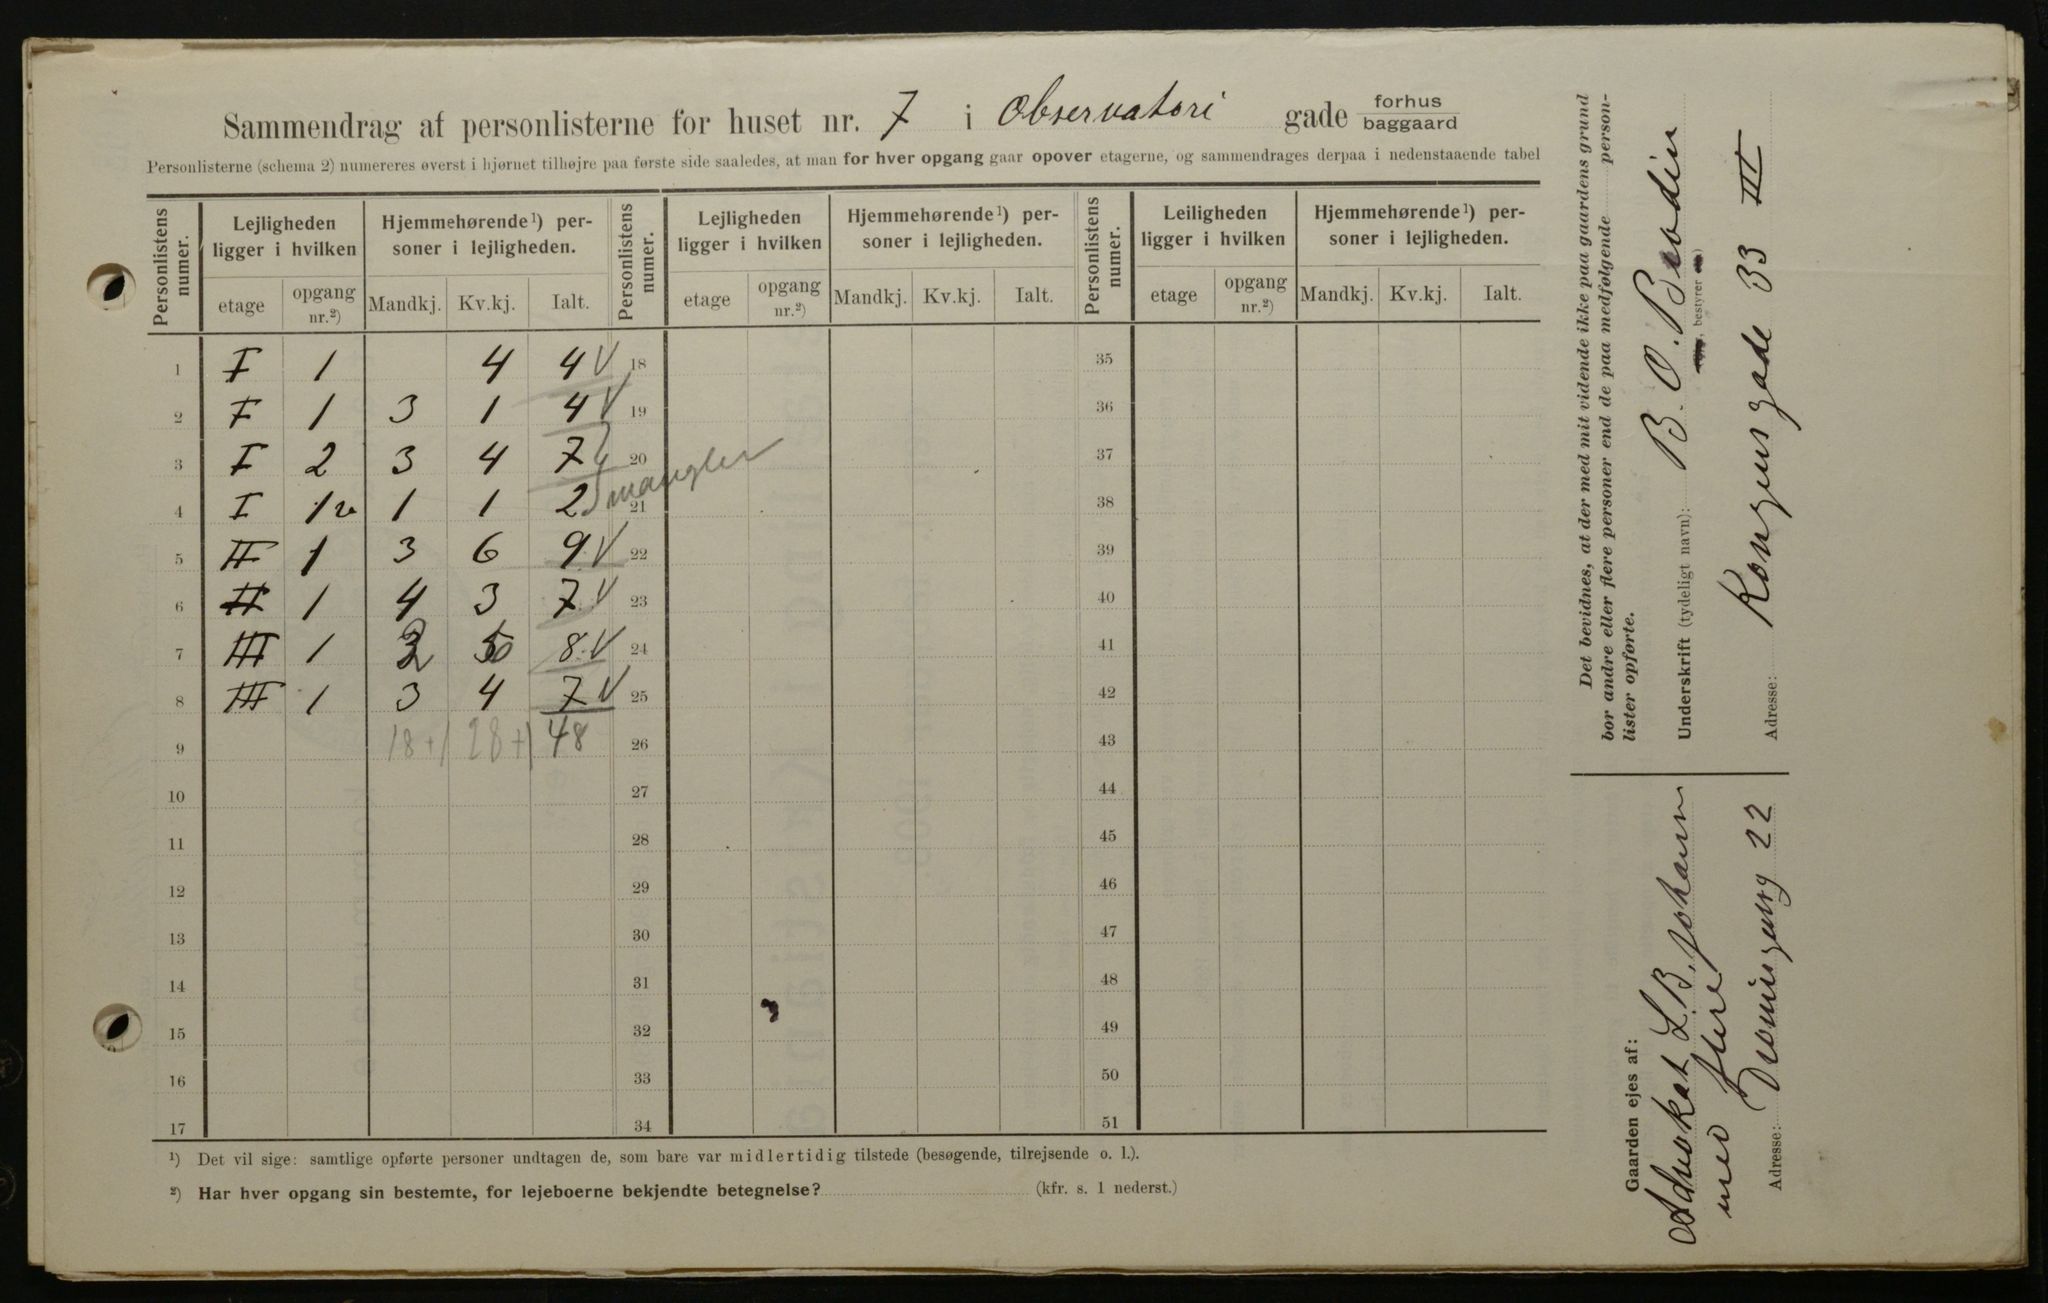 Sammendrag af personlisterne for huset nr. 7 i Observatori gade forhus baggaard
Personlisterne (schema 2) numereres øverst i hjørnet tilhøjre paa første side saaledes, at man for hver opgang gaar opover etagerne, og sammendrages derpaa i nedenstaaende tabel
Personlistens numer. Lejligheden ligger i hvilken Hjemmehørende¹) personer i lejligheden. Personlistens numer. Lejligheden ligger i hvilken Hjemmehørende¹) personer i lejligheden. Personlistens numer. Leiligheden ligger i hvilken Hjemmehørende¹) personer i lejligheden.
etage opgang nr.²) Mandkj. Kv.kj. Ialt. etage opgang nr.²) Mandkj. Kv.kj. Ialt. etage opgang nr.²) Mandkj. Kv.kj. Ialt.
1 I 1 4 4 V 18 35
2 I 1 3 1 4 V 19 36
3 I 2 3 4 7 20 37
4 I 1 1 2 mangler 21 38
5 II 1 3 6 9 V 22 39
6 II 1 4 3 7 V 23 40
7 III 1 8 V 24 41
8 III 1 3 4 7 V 25 42
9 18+1 28+1 48 26 43
10 27 44
11 28 45
12 29 46
13 30 47
14 31 48
15 32 49
16 33 50
17 34 51
¹) Det vil sige: samtlige opførte personer undtagen de, som bare var midlertidig tilstede (besøgende, tilrejsende o. l.).
²) Har hver opgang sin bestemte, for lejeboerne bekjendte betegnelse? (kfr. s. 1 nederst.)
Det bevidnes, at der med mit vidende ikke paa gaardens grund
bor andre eller flere personer end de paa medfølgende personlister opførte.
Underskrift (tydeligt navn): B. O.
, bestyrer
Adresse: Kongens gade 33 III
Gaarden ejes af:
Advokat L. B.
med flere
Adresse: Dronningensg 22